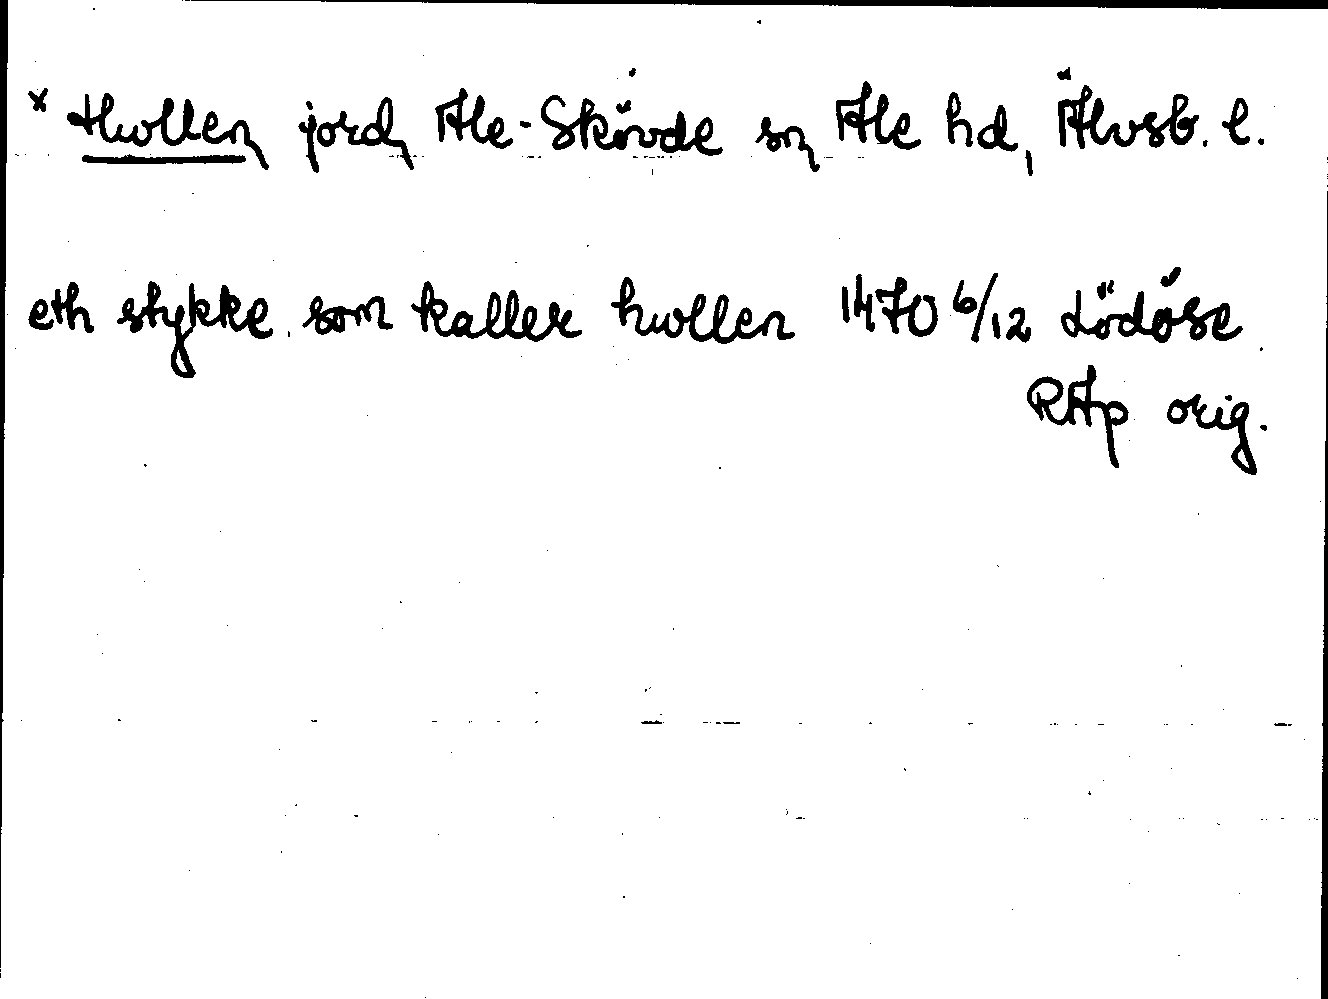 x Hwllen, jord, Ale-Skövde sn, Ale hd, Älvsb. l.
eth stykke som kaller hwllen 1470 6/12 Lödöse
RAp orig.